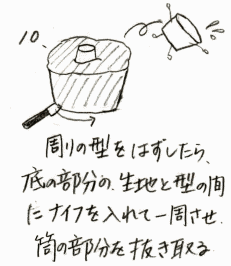 10、
周りの型をはずしたら、
底の部分の、生地と型の間
にナイフを入れて一周させ
筒の部分を抜き取る